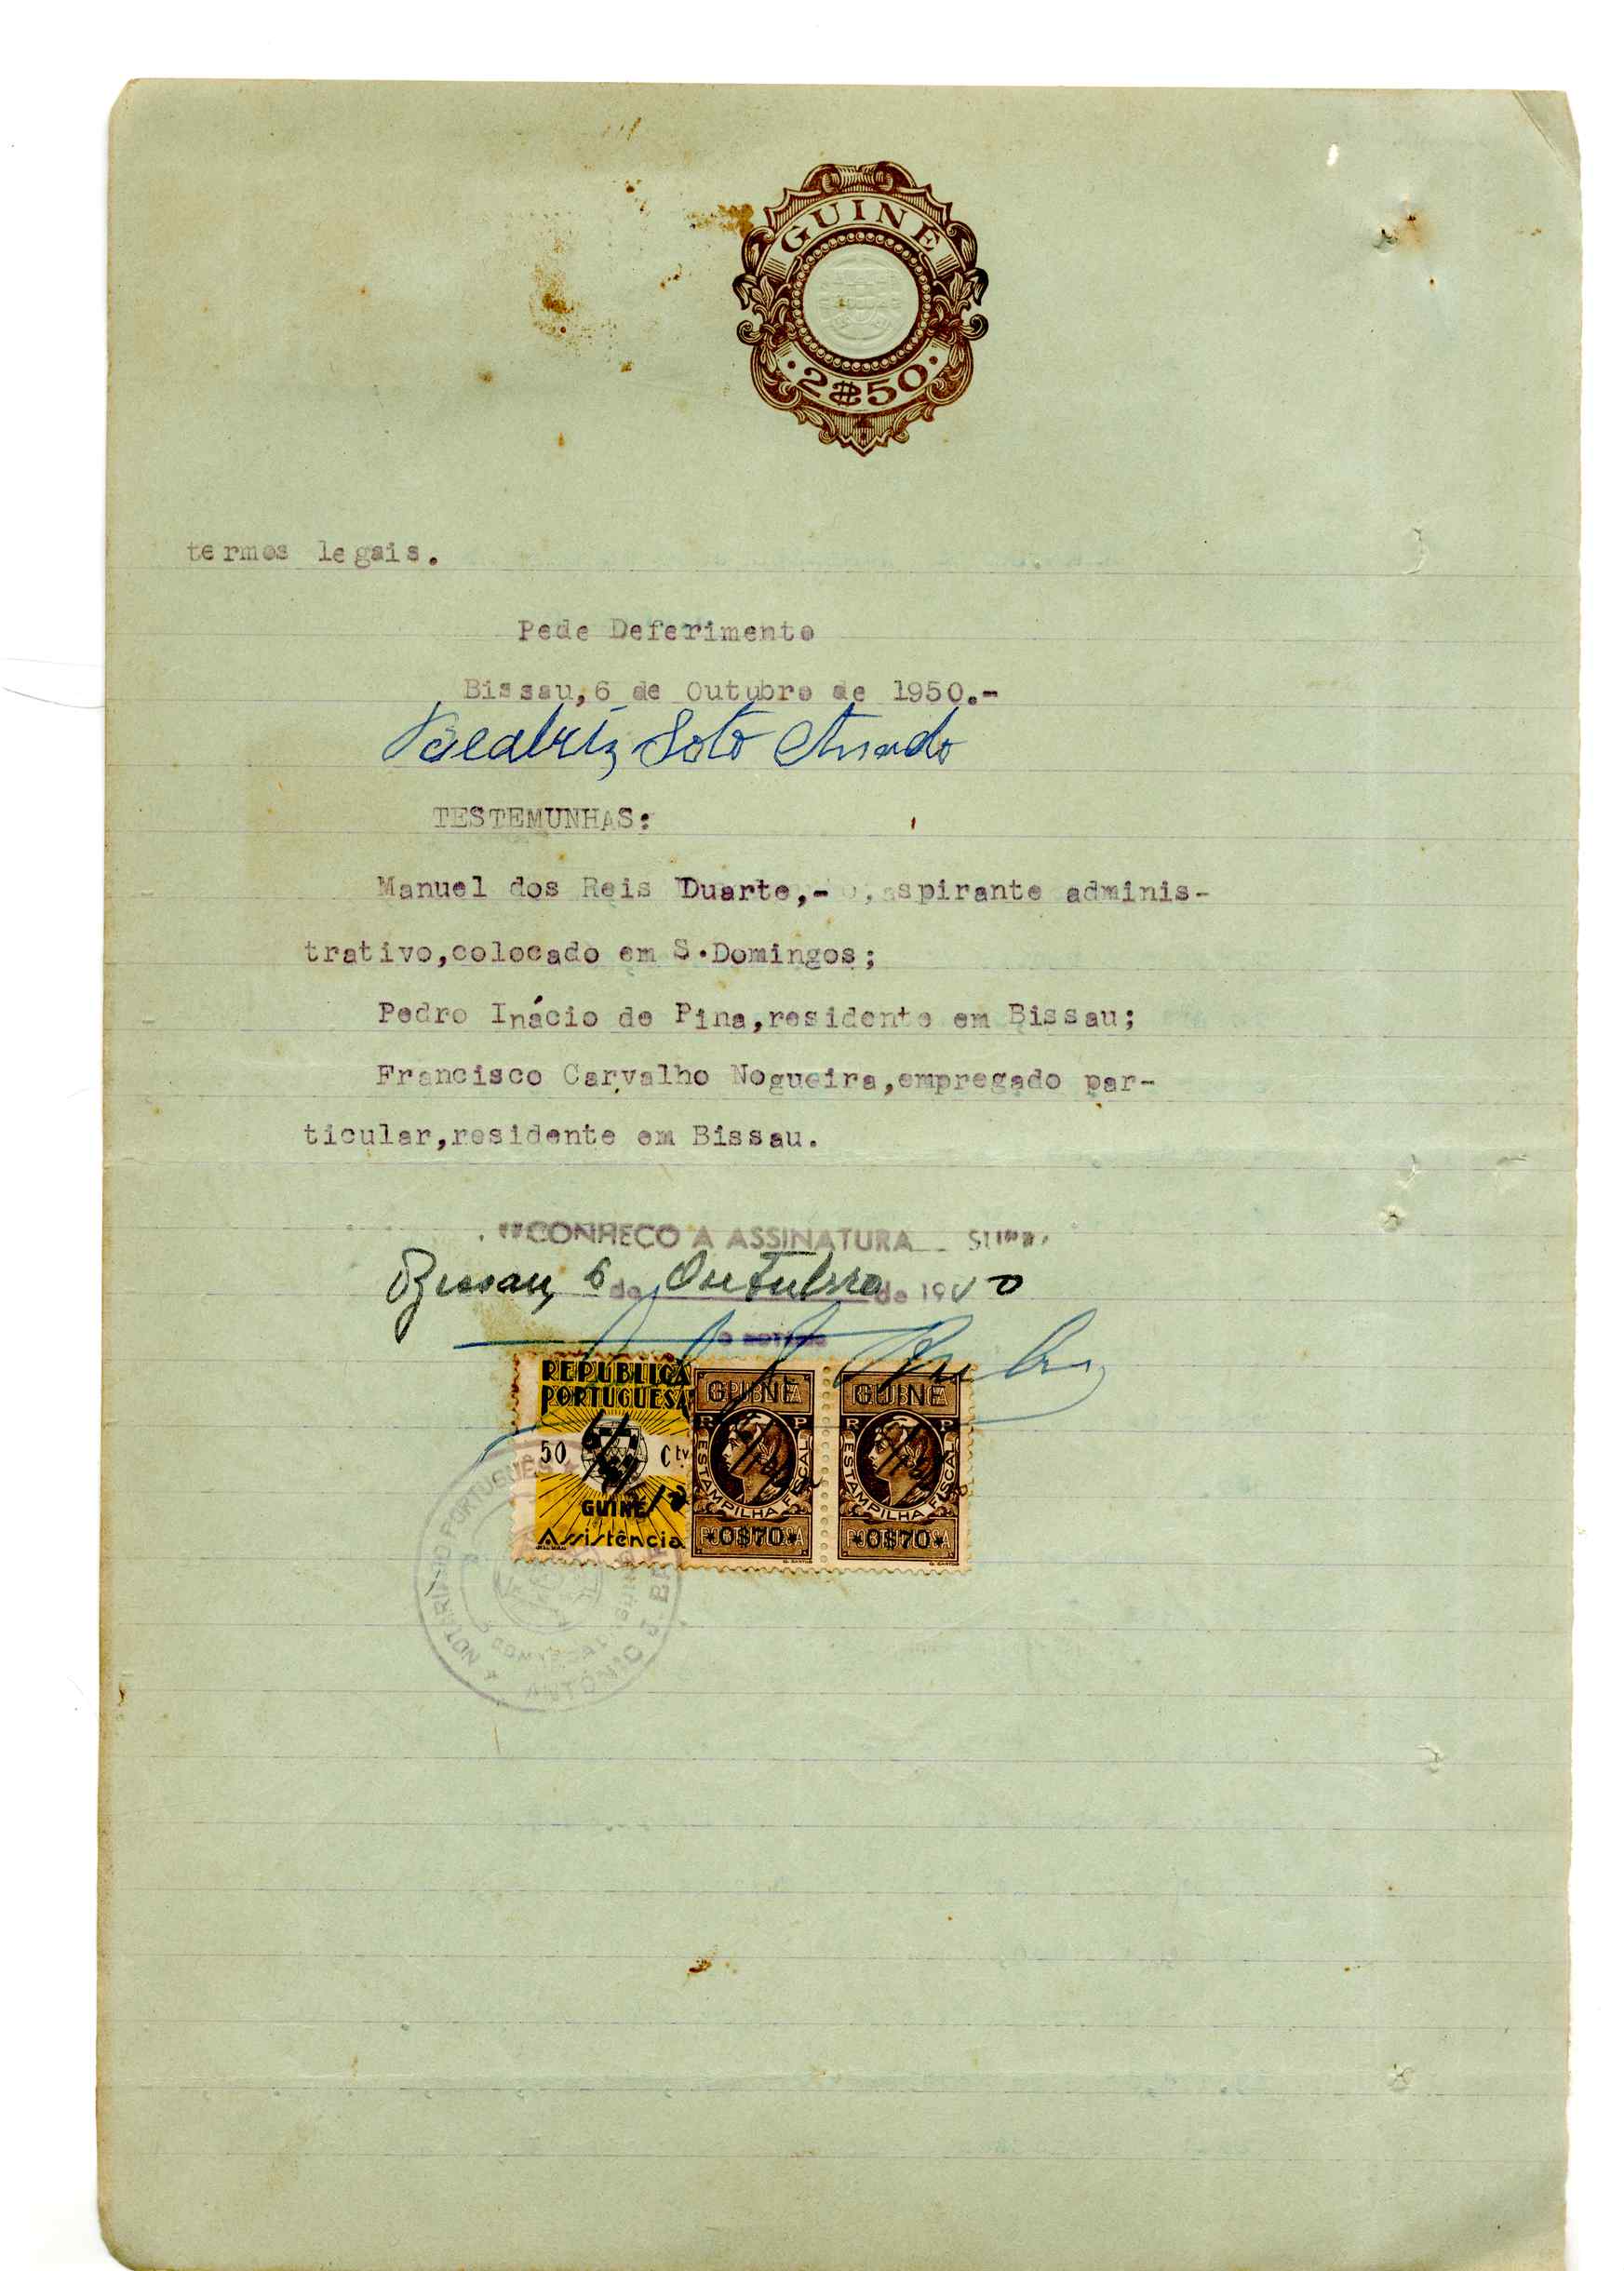 GUINÉ
·2$50·
termos legais.
Pede Deferimento
Bissau,6 de Outubro de 1950.-
Beatriz Soto Amado
TESTEMUNHAS:
Manuel dos Reis Duarte,- aspirante adminis-
trativo,colocado em S.Domingos;
Pedro Inácio de Pina,residente em Bissau;
Francisco Carvalho Nogueira,empregado par-
ticular,residente em Bissau.
RECONHEÇO A ASSINATURA SUPRA
Bissau, 6 de Outubro de 1950
O NOTÁRIO
REPÚBLICA
PORTUGUESA
50 Ctv
GUINÉ
Assistência
GUINÉ
R P
ESTAMPILHA FISCAL
*0$70*
GUINÉ
R P
ESTAMPILHA FISCAL
*0$70*
NOTARIADO PORTUGUÊS
ANTÓNIO